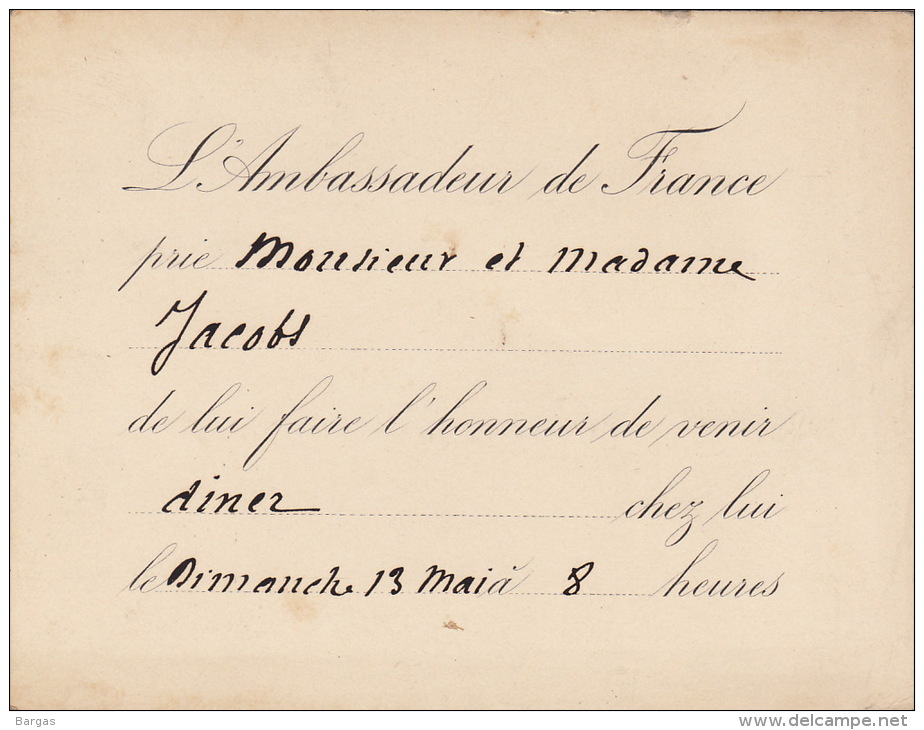 L'Ambassadeur de France
prie Monsieur et Madame
Jacobs
de lui faire l'honneur de venir
diner chez lui
le Dimanche 13 Mai à 8 heures
Bargas
www.delcampe.net